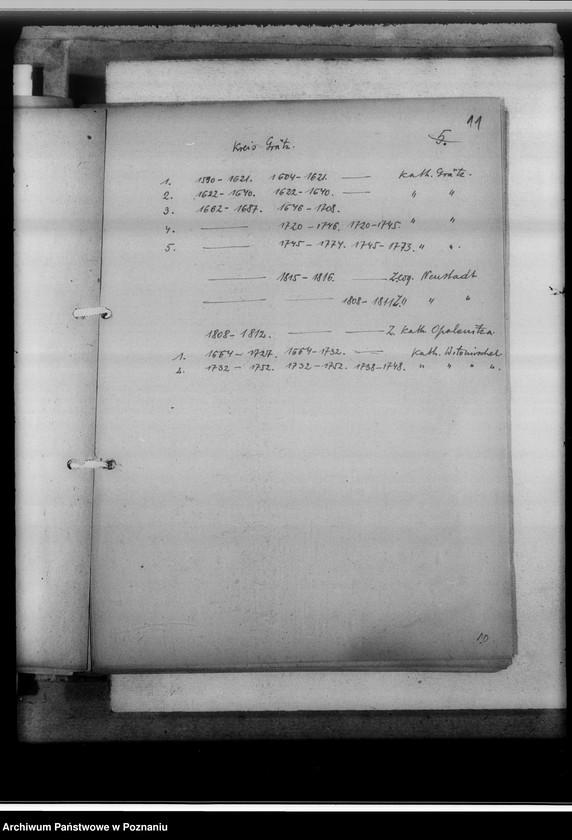 11
5.
Kreis Grätz.
1. 1590-1621. 1604-1621. — Kath. Grätz.
2. 1622-1640. 1622-1640. — " "
3. 1662-1687. 1646-1708.
4. — 1720-1746. 1720-1745. " "
5. — 1745-1774. 1745-1773. " "
— 1815-1816. — Neustadt
— — 1808-1811 " "
1808-1812. — — Z. Kath. Opalenitza
1. 1664-1727. 1664-1732. — Kath. Witomischel
2. 1732-1752. 1732-1752. 1738-1748. " " " "
10
Archiwum Państwowe w Poznaniu